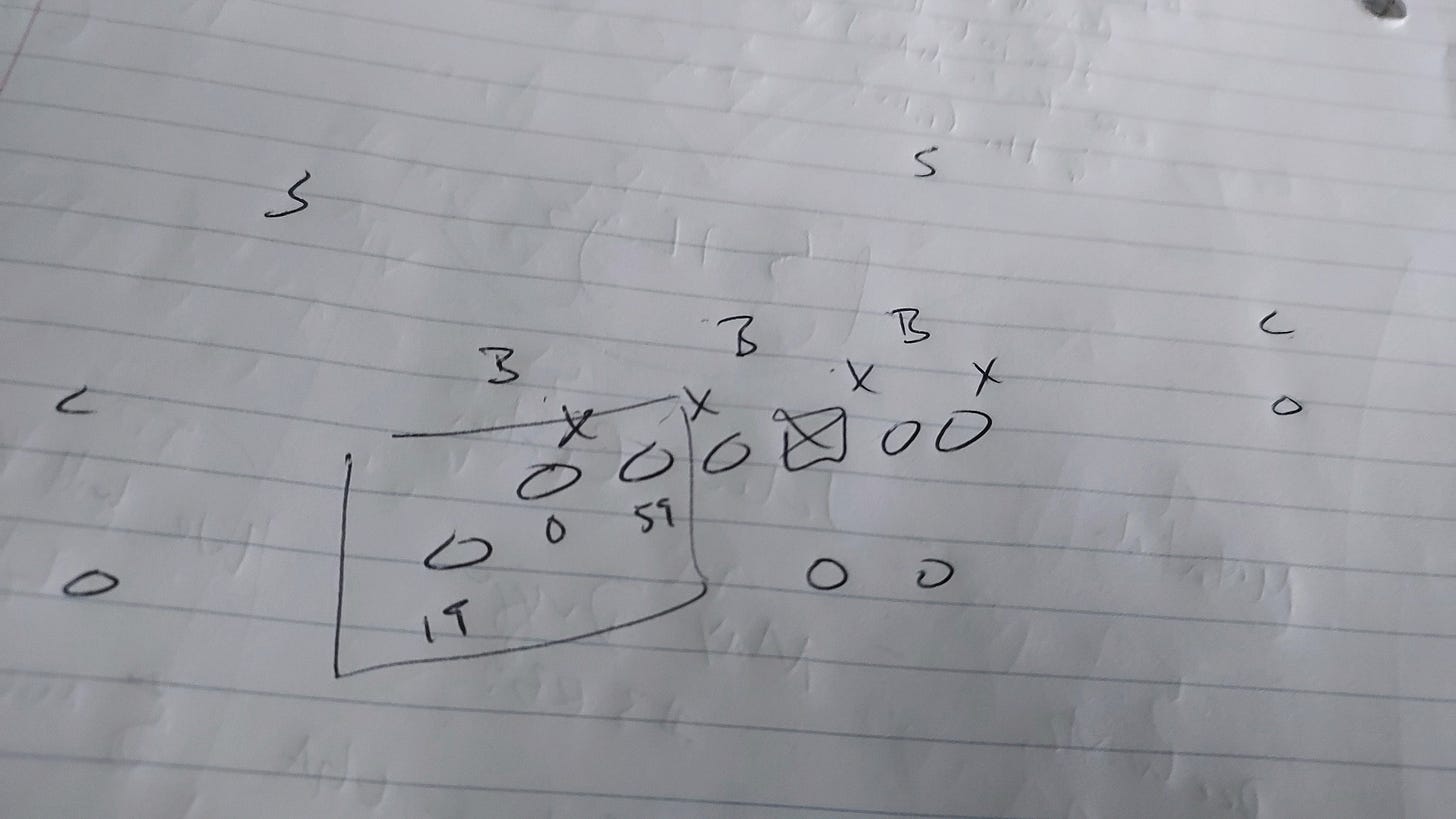 S
S
B B B C
C X X X X
O O O O X O O O
O 59
O O O O
19